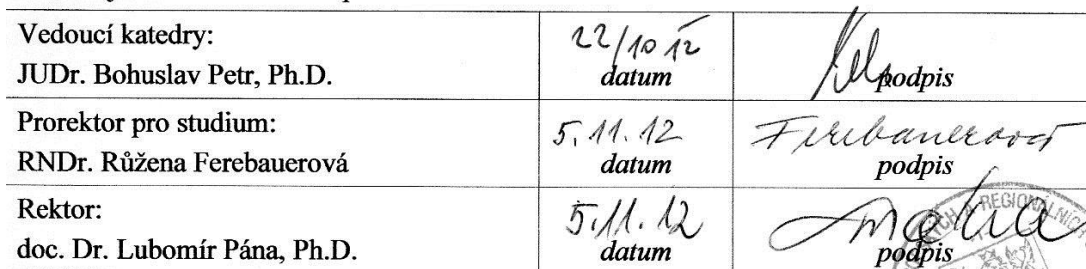 Vedoucí katedry:
JUDr. Bohuslav Petr, Ph.D.
22/10 12
datum
podpis
Prorektor pro studium:
RNDr. Růžena Ferebauerová
5.11.12
datum
Ferebauerová
podpis
Rektor:
doc. Dr. Lubomír Pána, Ph.D.
5.11.12
datum
podpis
REGIONÁLNÍCH